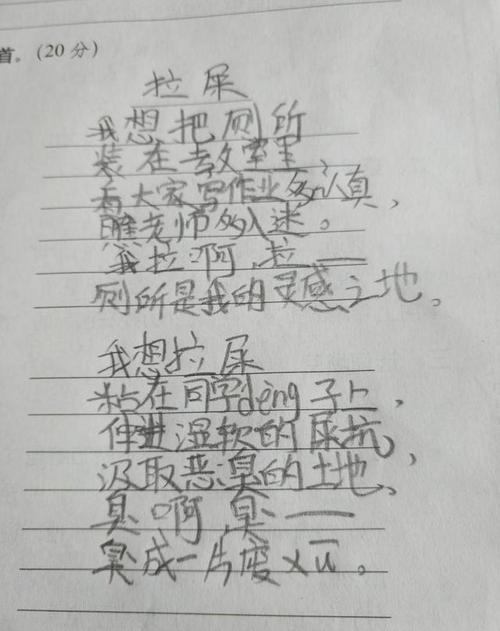 首。(20分)
拉屎
我想把厕所
装在教室里
看大家写作业多认真，
瞧老师多入迷。
我拉啊，拉——
厕所是我的灵感之地。
我想拉屎
粘在同学dèng子上，
伸进湿软的尿坑，
汲取恶臭的土地，
臭啊，臭——
臭成一片废xū。